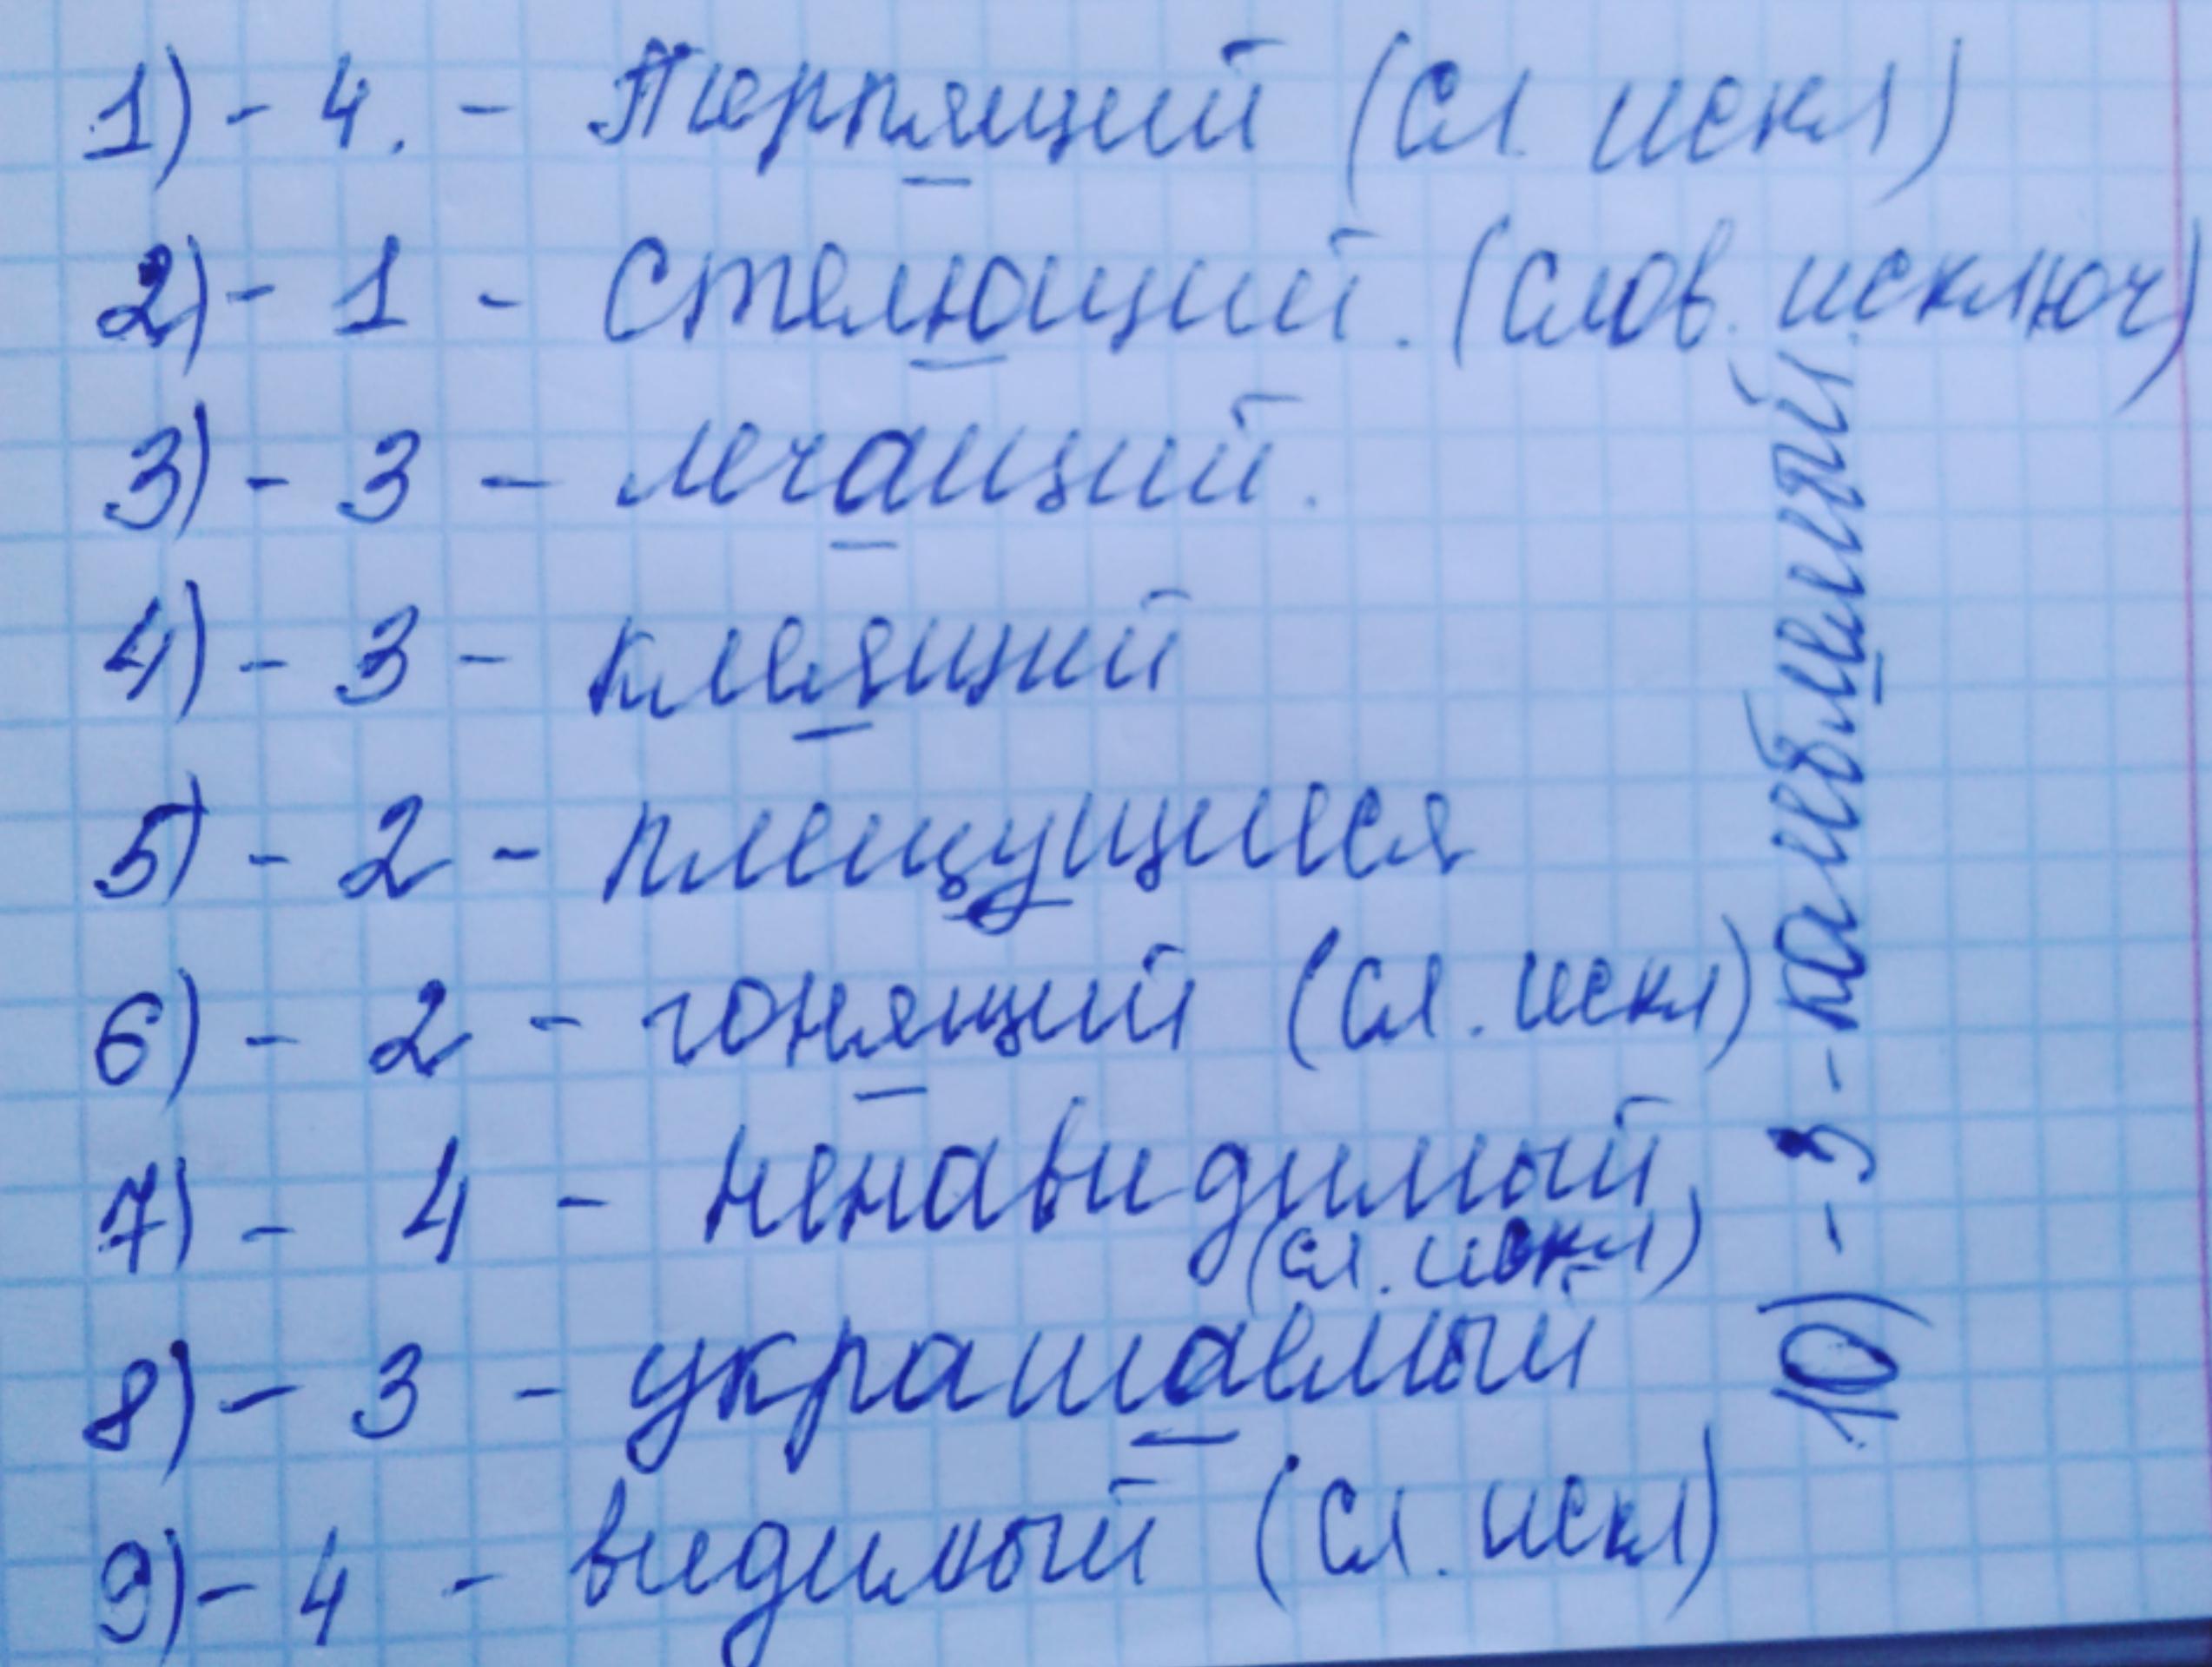 1) - 4. - Терпящий (сл. искл)
2) - 1 - Стелющий. (слов. исключ)
3) - 3 - мчащий.
4) - 3 - клеящий
5) - 2 - плещущиеся
6) - 2 - гонящий (сл. искл)
7) - 4 - ненавидимый
(сл. искл)
8) - 3 - украшаемый
9) - 4 - видимый (сл. искл)
10) - 3 - колеблемый.